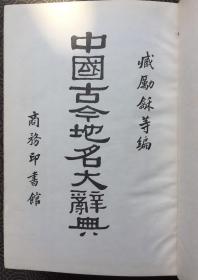 臧勵龢等編
中國古今地名大辭典
商務印書館